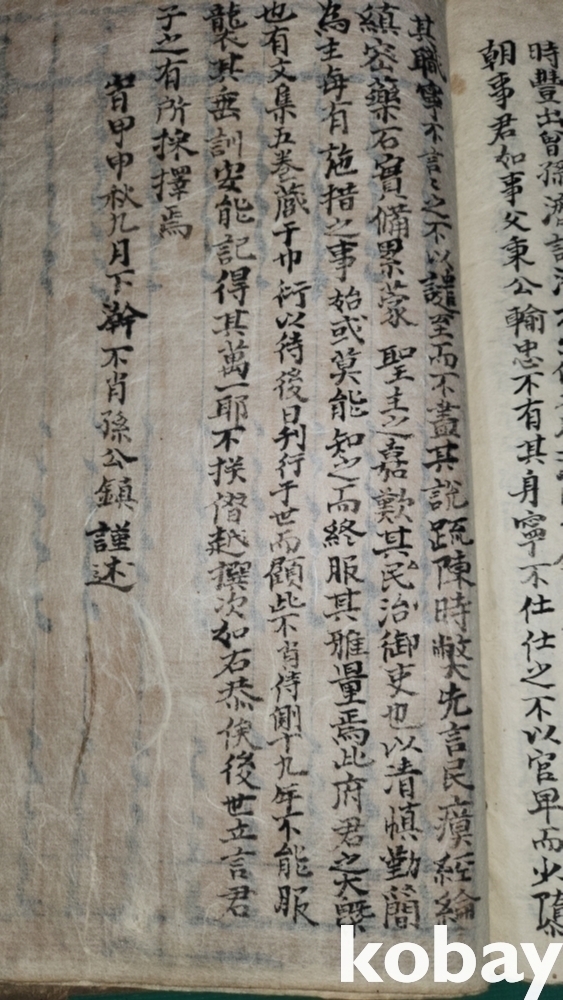 時豐出曾孫
朝事君如事父秉公輸忠不有其身寧不仕仕之不以官卑而少隳
其職寧不言言之不以讜至而不盡其說疏陳時弊先言民瘼經綸
縝密藥石實備累蒙 聖主之嘉歎其民治御吏也以清愼勤簡
為主每有施措之事始或莫能知之而終服其雅量焉此府君之大槩
也有文集五卷藏于巾衍以待後日刊行于世而顧此不肖侍側十九年不能服
襲其垂訓安能記得其萬一耶不揆僭越撰次如右恭俟後世立言君
子之有所採擇焉
峕甲申秋九月下澣不肖孫公鎮謹述
kobay